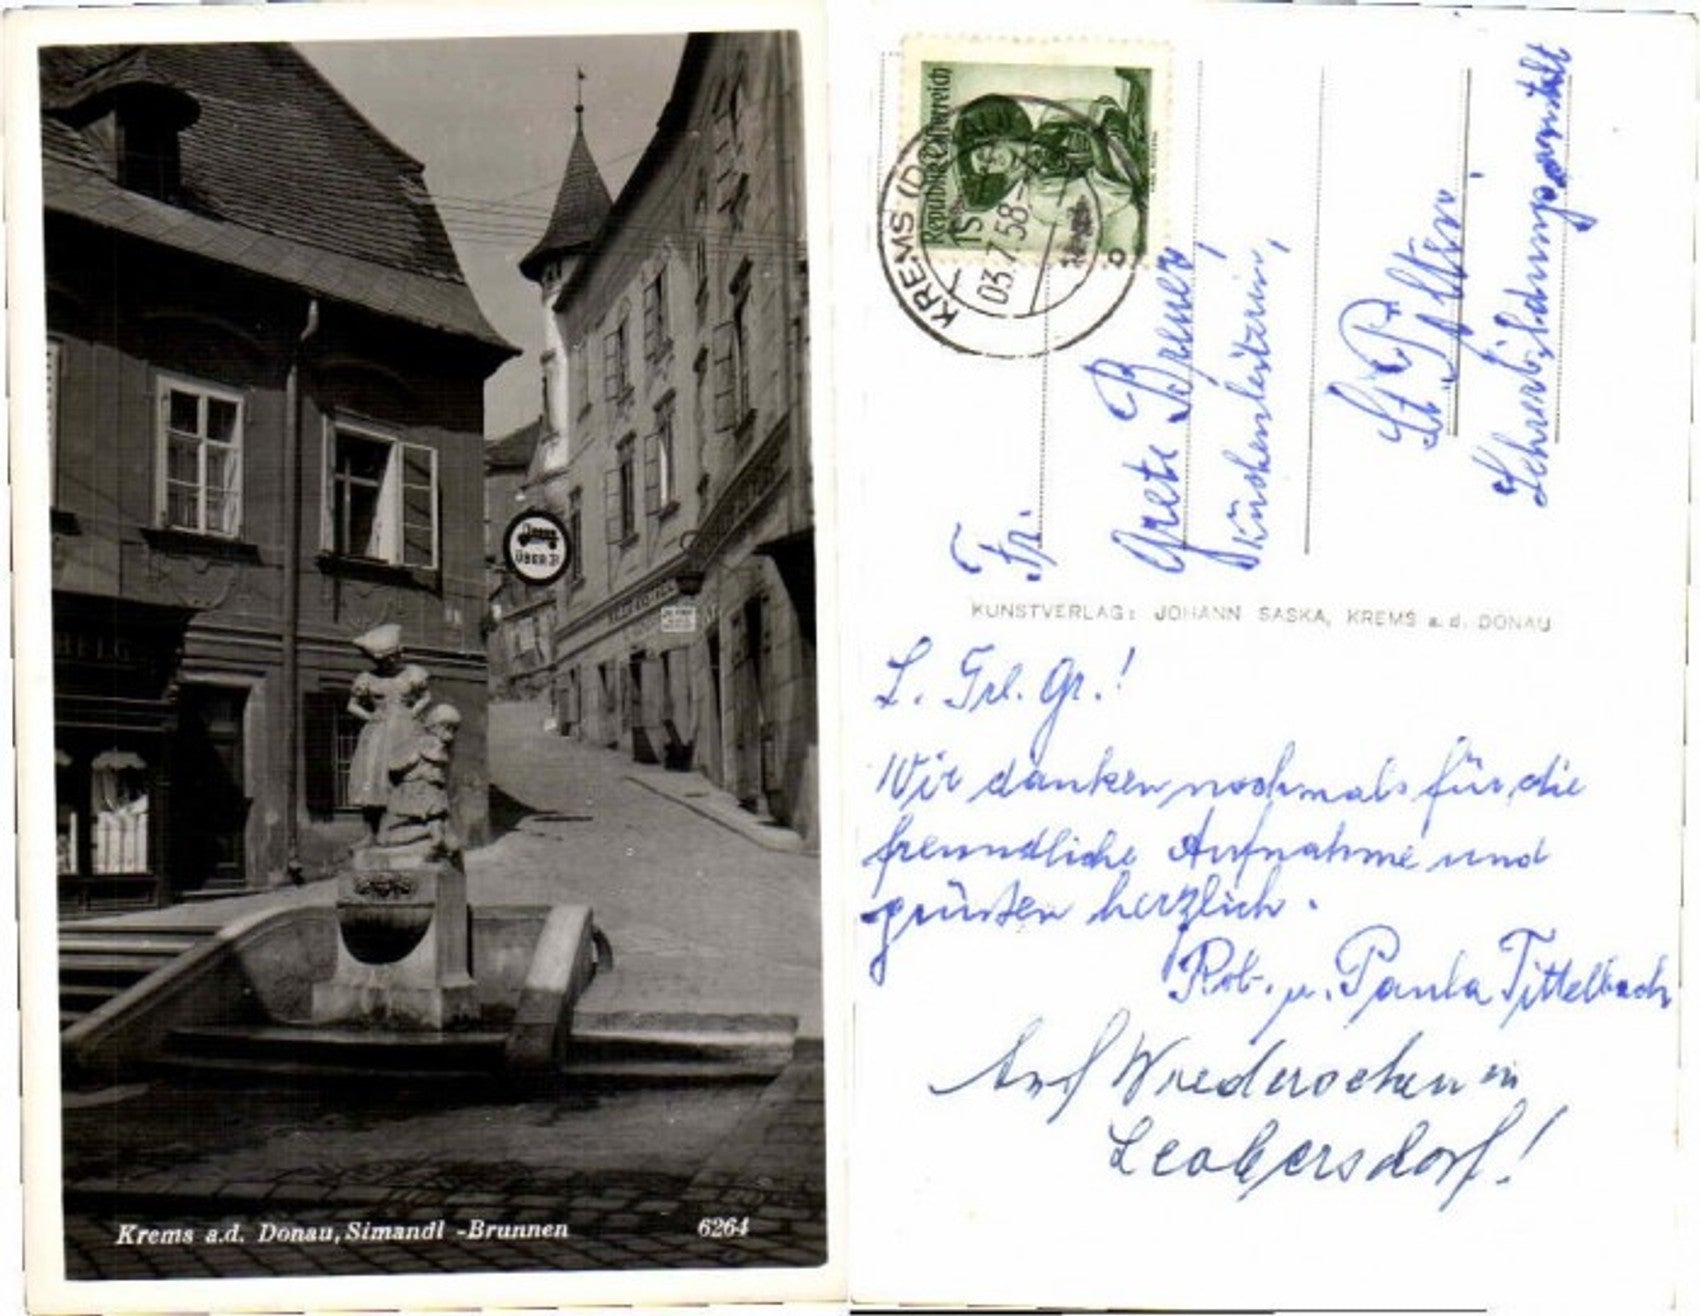 ÜBER 3t
Krems a.d. Donau, Simandl -Brunnen
6264
Republik Österreich
1S
KREMS (DONAU)
03.7.58-
Fr.
Grete Breuer,
Küchenleiterin,
St. Pölten,
Lehrerbildungsanstalt
KUNSTVERLAG: JOHANN SASKA, KREMS a. d. DONAU
L. Frl. Gr.!
Wir danken nochmals für die
freundliche Aufnahme und
grüßen herzlich.
Rob. u. Paula Tittelbach
Auf Wiedersehen in
Leobersdorf!